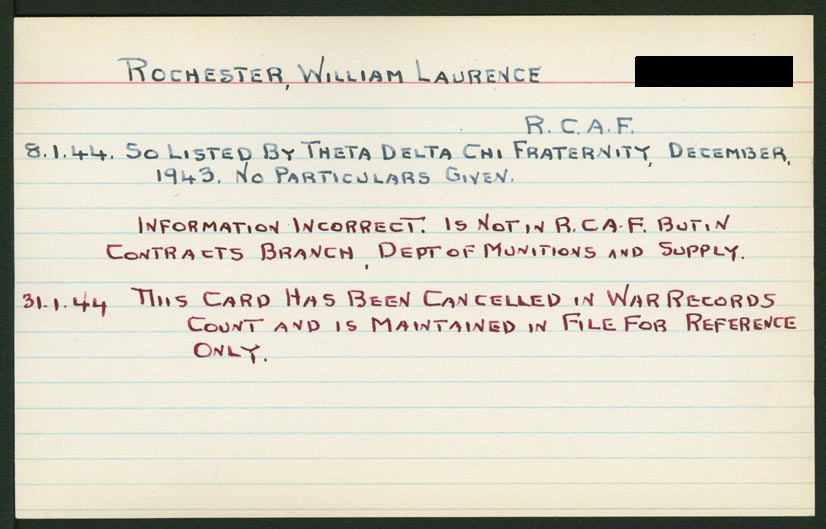 ROCHESTER, WILLIAM LAURENCE
R.C.A.F.
8.1.44. SO LISTED BY THETA DELTA CHI FRATERNITY, DECEMBER,
1943. NO PARTICULARS GIVEN.
INFORMATION INCORRECT. IS NOT IN R.C.A.F. BUT IN
CONTRACTS BRANCH, DEPT OF MUNITIONS AND SUPPLY.
31.1.44 THIS CARD HAS BEEN CANCELLED IN WAR RECORDS
COUNT AND IS MAINTAINED IN FILE FOR REFERENCE
ONLY.